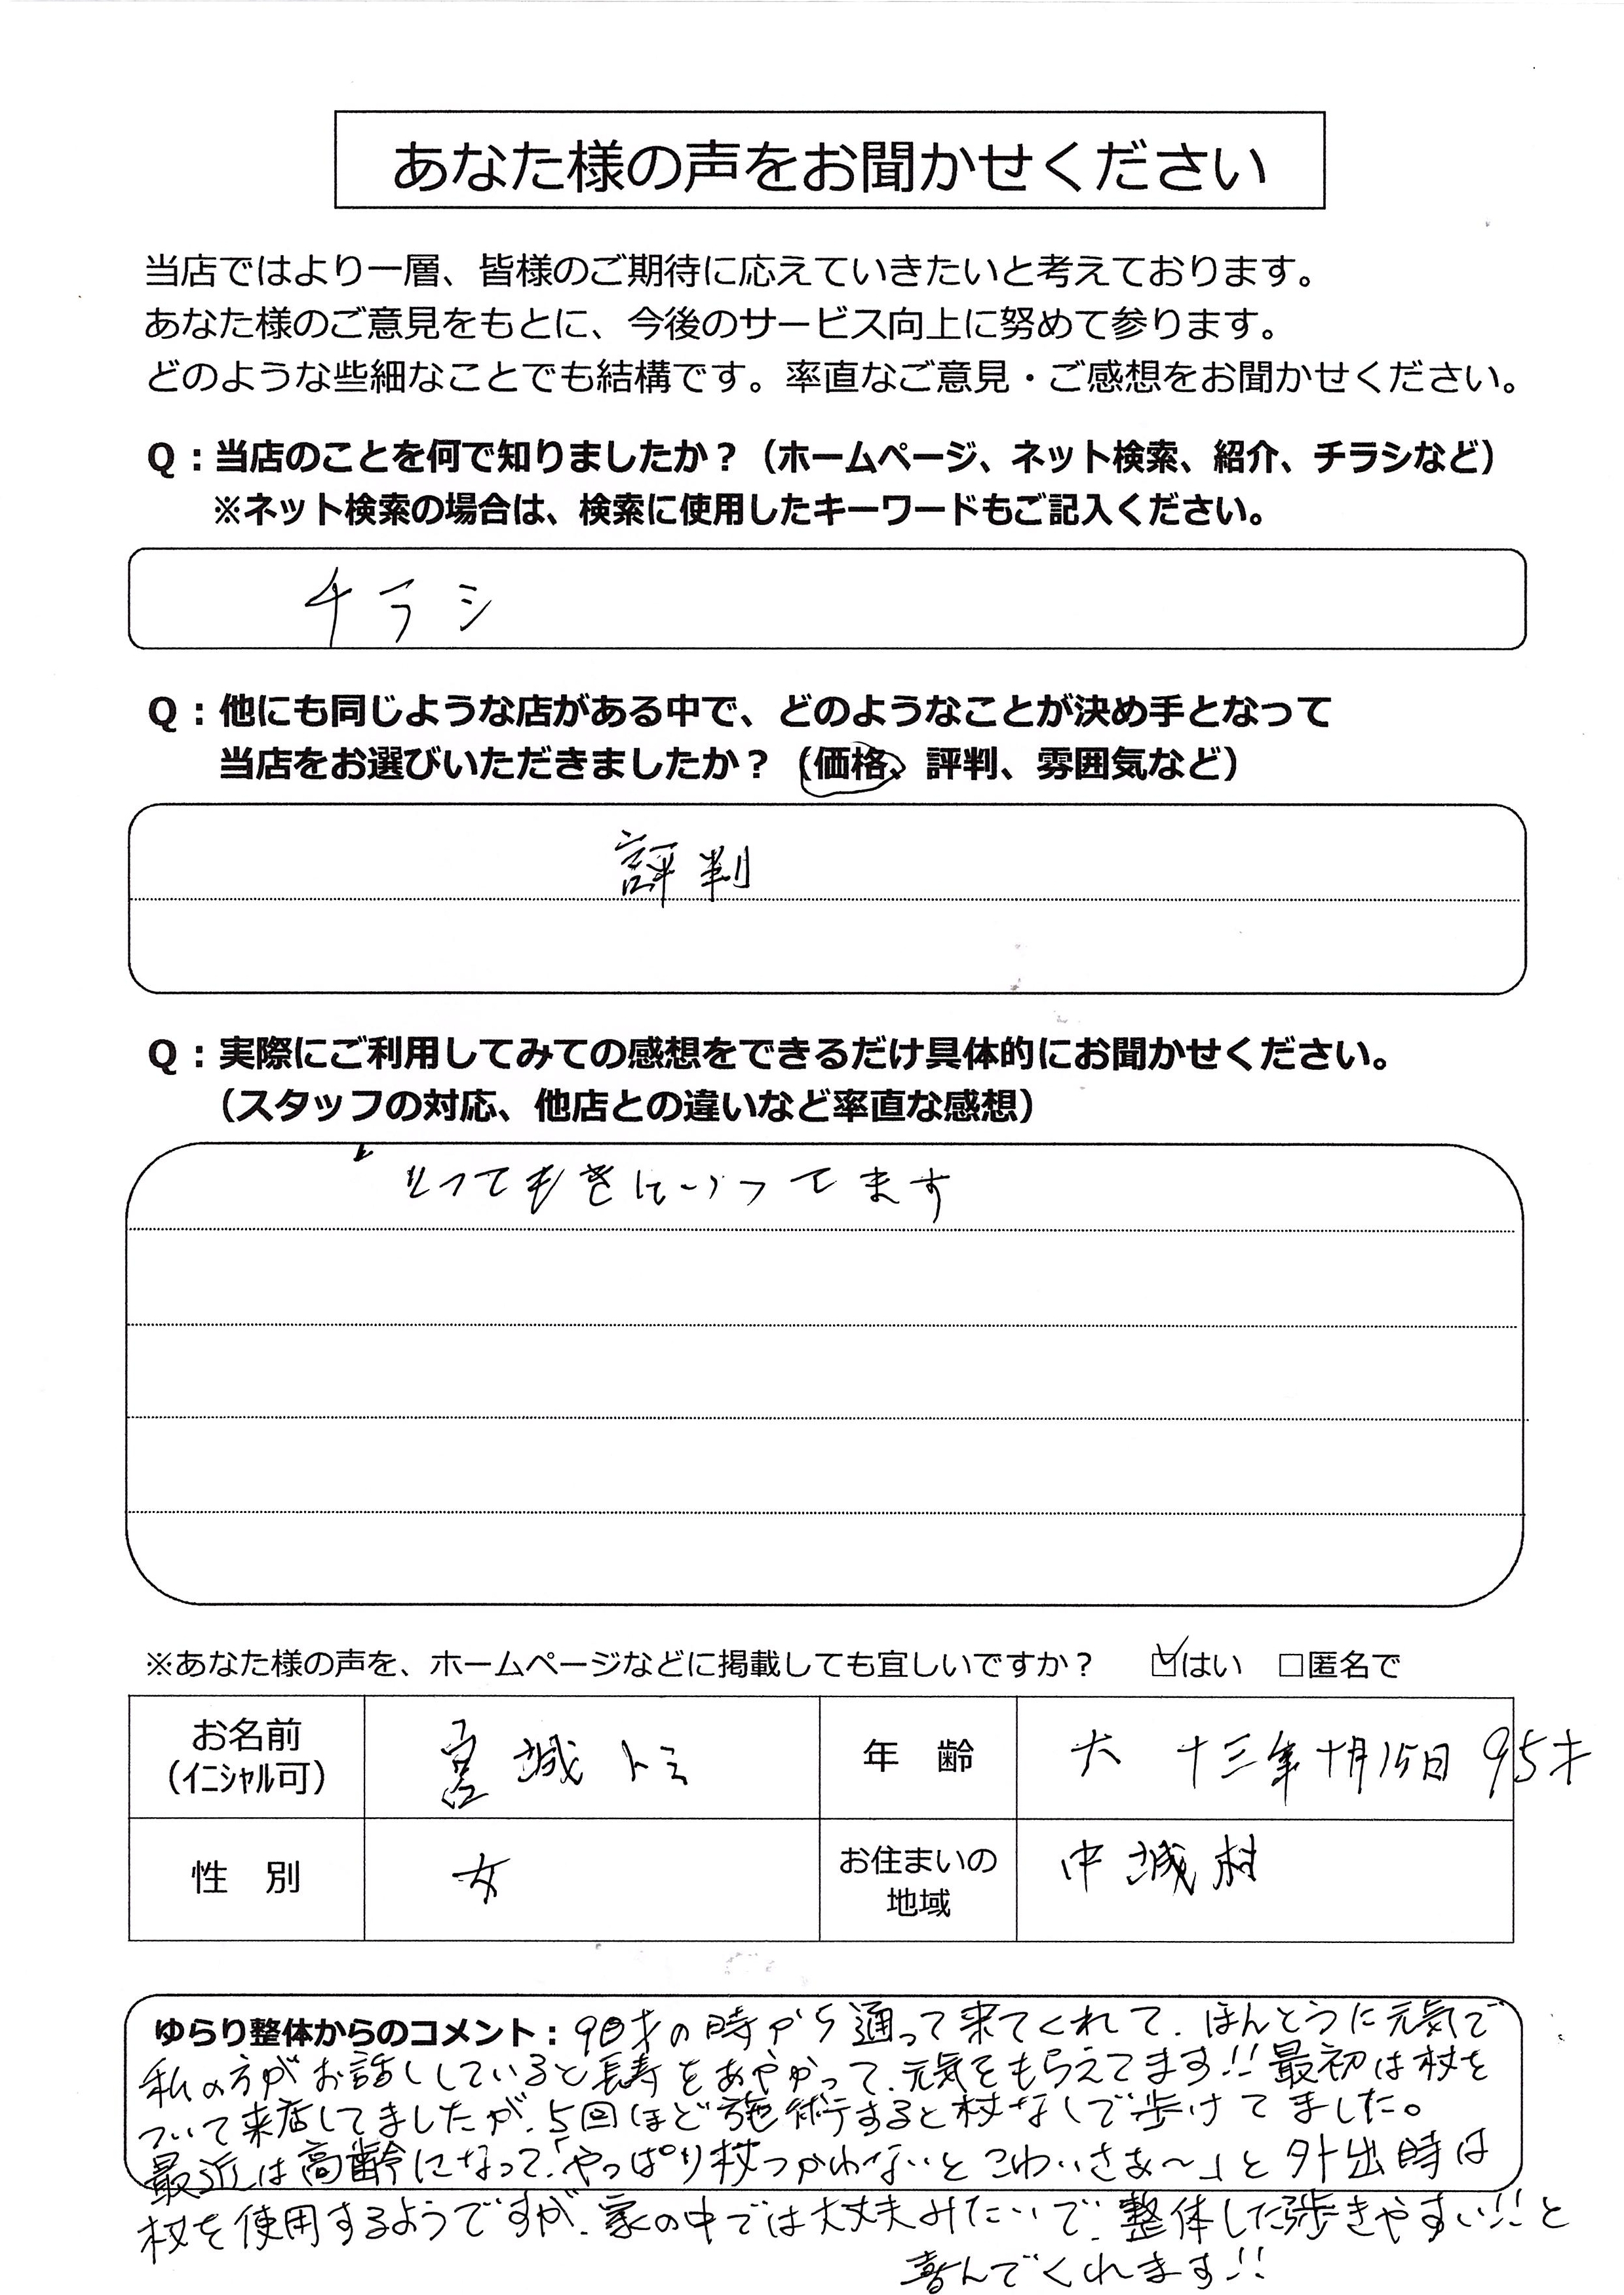 あなた様の声をお聞かせください
当店ではより一層、皆様のご期待に応えていきたいと考えております。
あなた様のご意見をもとに、今後のサービス向上に努めて参ります。
どのような些細なことでも結構です。率直なご意見・ご感想をお聞かせください。
Q：当店のことを何で知りましたか？（ホームページ、ネット検索、紹介、チラシなど）
※ネット検索の場合は、検索に使用したキーワードもご記入ください。
チラシ
Q：他にも同じような店がある中で、どのようなことが決め手となって
当店をお選びいただきましたか？（価格、評判、雰囲気など）
評判
Q：実際にご利用してみての感想をできるだけ具体的にお聞かせください。
（スタッフの対応、他店との違いなど率直な感想）
とってもきにいってます
※あなた様の声を、ホームページなどに掲載しても宜しいですか？ ☑はい □匿名で
お名前 宮城トミ 年 齢 大 十三年十月15日 95才
（ｲﾆｼｬﾙ可）
性 別 女 お住まいの 中城村
地域
ゆらり整体からのコメント：90才の時から通って来てくれて、ほんとうに元気で
私の方がお話ししていると長寿をあやかって、元気をもらえてます!!最初は杖を
ついて来店してましたが、5回ほど施術すると杖なしで歩けてました。
最近は高齢になって「やっぱり杖つかわないとこわいさぁ～」と外出時は
杖を使用するようですが、家の中では大丈夫みたいで、整体した歩きやすい!!と
喜んでくれます!!